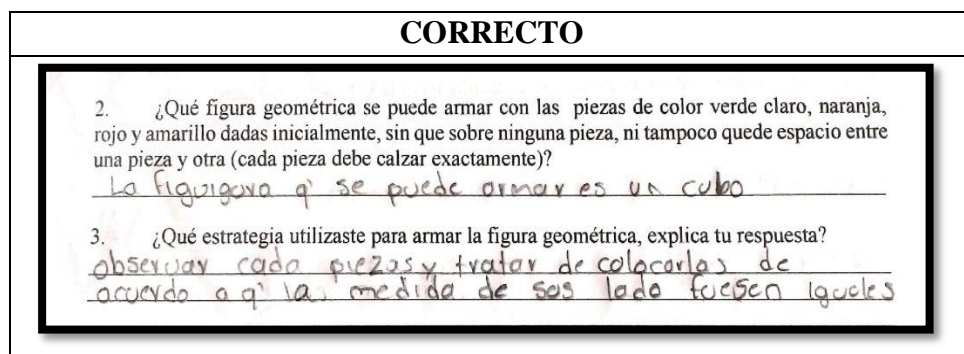 CORRECTO
2. ¿Qué figura geométrica se puede armar con las piezas de color verde claro, naranja,
rojo y amarillo dadas inicialmente, sin que sobre ninguna pieza, ni tampoco quede espacio entre
una pieza y otra (cada pieza debe calzar exactamente)?
La figuigura q' se puede armar es un cubo
3. ¿Qué estrategia utilizaste para armar la figura geométrica, explica tu respuesta?
observar cada piezas y tratar de colocarlas de
acuerdo a q' las medida de sus lado fuesen iguales